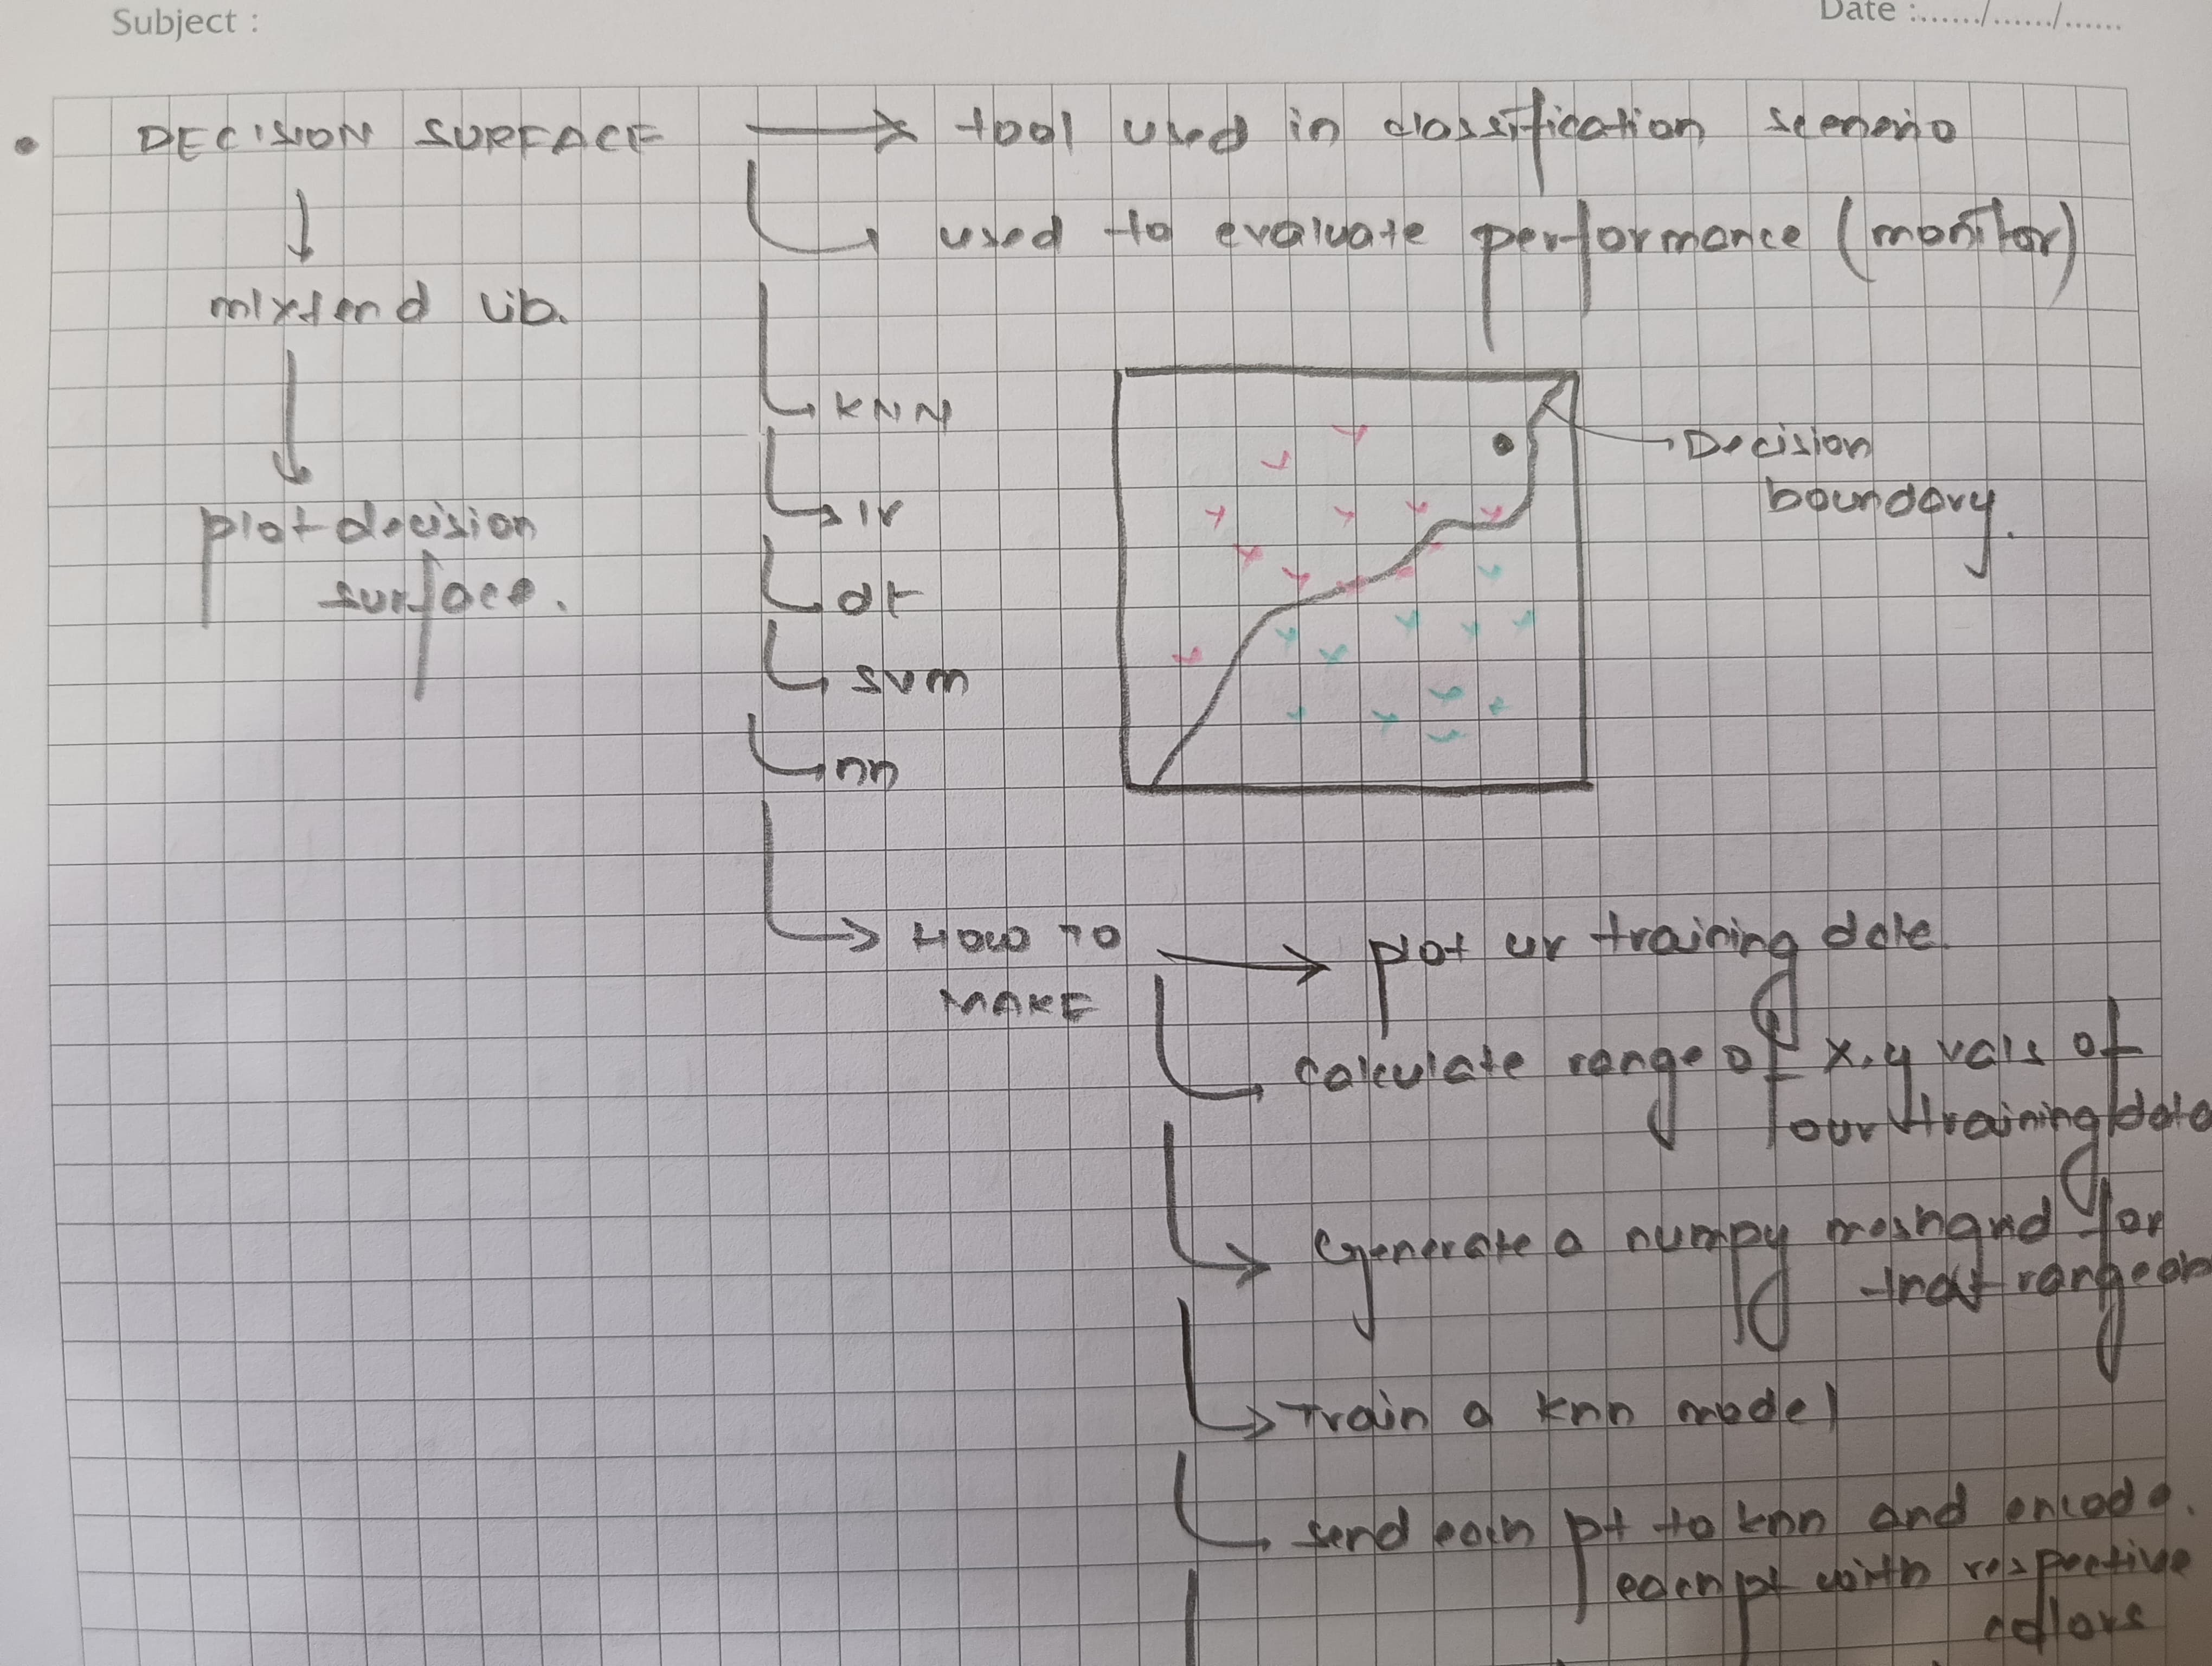 Subject :
Date :....../....../......
DECISION SURFACE → tool used in classification scenerio
used to evaluate performance (monitor)
mlxtend lib.
plot decision
surface.
KNN
lr
dt
svm
nn
Decision
boundary.
HOW TO
MAKE
plot ur training data.
calculate range of x,y vals of
our training data
Generate a numpy meshgrid for
that range
Train a knn model
send each pt to knn and encode
each pt with respective
colors